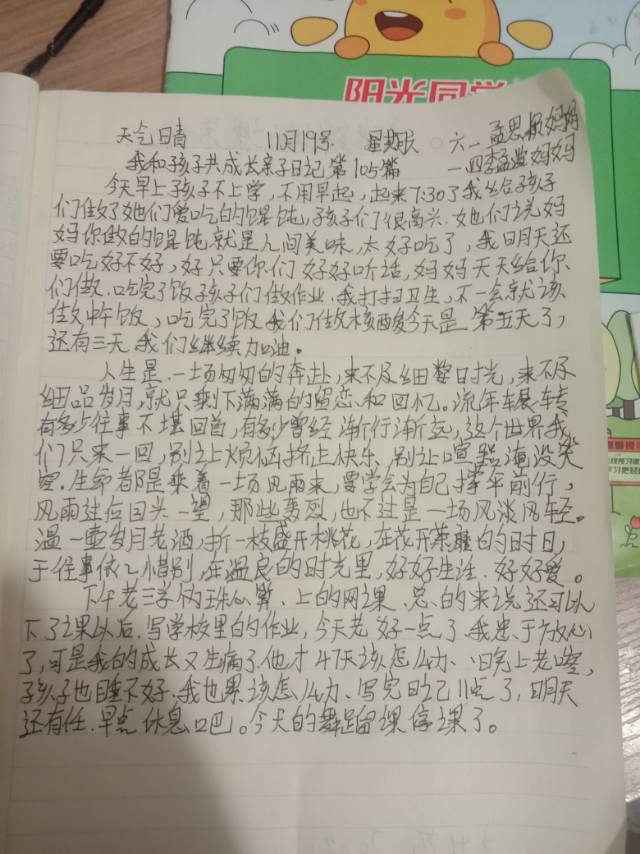 阳光同学
天气晴 11月19号 星期六 六一 孟思 妈妈
我和孩子共成长亲子日记第105篇 一四李孟 妈妈
今天早上孩子不上学,不用早起,起来7:30了我给孩子
们做了她们爱吃的馄饨,孩子们很高兴.她们说妈
妈你做的馄饨就是人间美味,太好吃了,我明天还
要吃好不好,好只要你们好好听话,妈妈天天给你
们做.吃完了饭孩子们做作业.我打扫卫生,不一会就该
做中午饭,吃完了饭我们做核酸今天是第五天了,
还有三天.我们继续加油。
人生是.一场匆匆的奔赴,来不及细数时光,来不及
细品岁月,就只剩下满满的留恋和回忆。流年辗转
有多少往事不堪回首,有多少曾经渐行渐远,这个世界我
们只来一回,别让烦恼挤走快乐,别让喧嚣淹没笑
.生命都是乘着一场风雨来,要学会为自己撑伞前行,
风雨过后回头一望,那些轰烈,也不过是一场风淡风轻.
温一壶岁月老酒,折一枝盛开桃花,在花开荼靡的时日,
于往事依依惜别,在温良的时光里,好好生活.好好爱。
下午老三学的珠心算.上的网课.总的来说还可以
下了课以后.写学校里的作业,今天老 好一点了我终于放心
了,可是我的成长又生病了.他才47天该怎么办、晚上老 ,
孩子也睡不好.我也累该怎么办、写完日记11点了,明天
还有任.早点休息吧。今天的舞蹈课停课了。